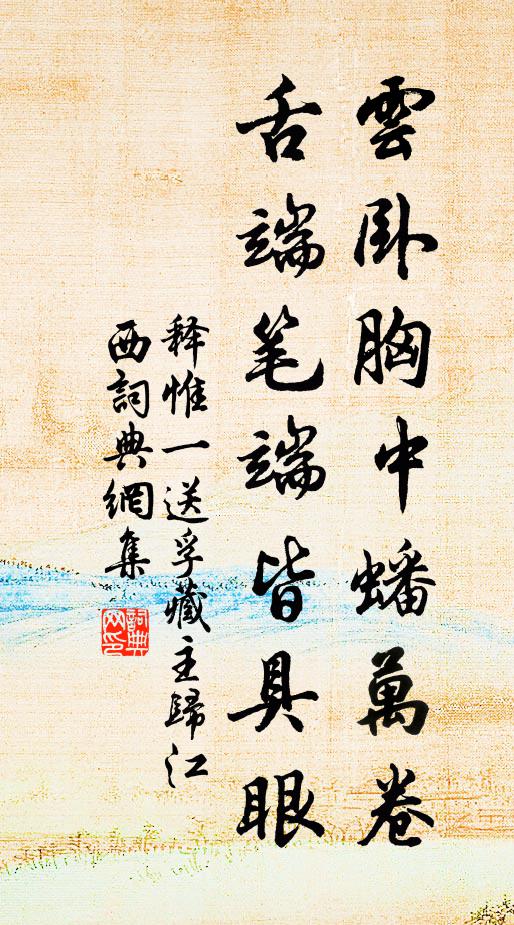 雲卧胸中蟠萬卷
舌端笔端皆具眼
释惟一送孚藏主歸江
西詞典網集
詞典
网印